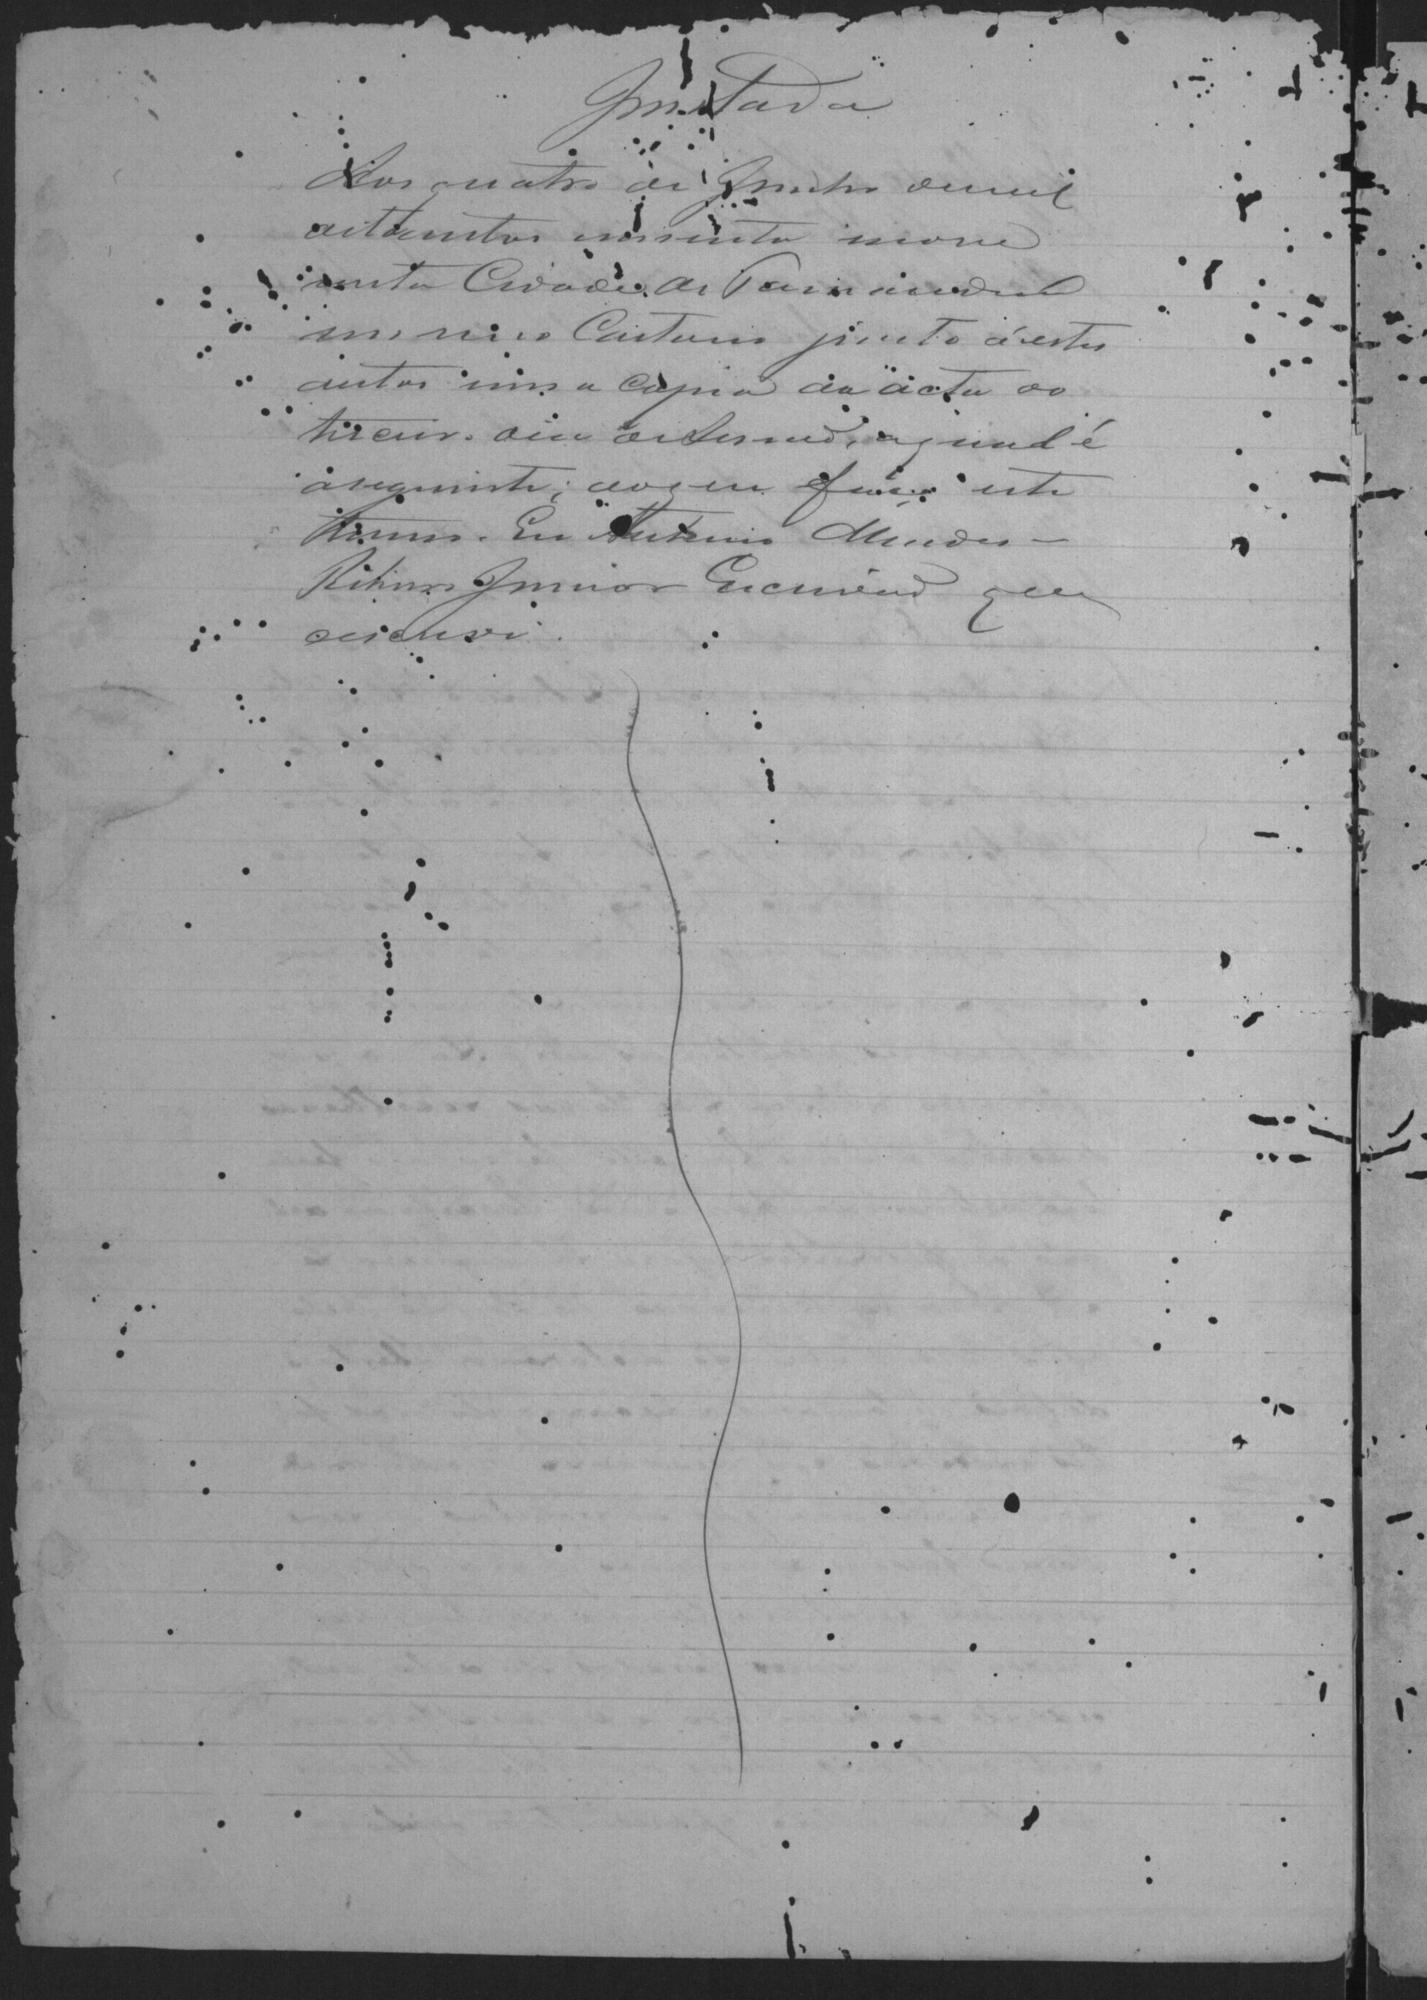 Juntada
Aos quatro de Junho de mil
oitocentos noventa e nove
nesta Cidade de
em meo Cartorio junto á estes
autos uma copia da acta do
terceiro dia de a qual é
a seguinte; do que faço este
termo. Eu Antonio Mendes
Ribeiro Junior Escrivão que
escrevi.